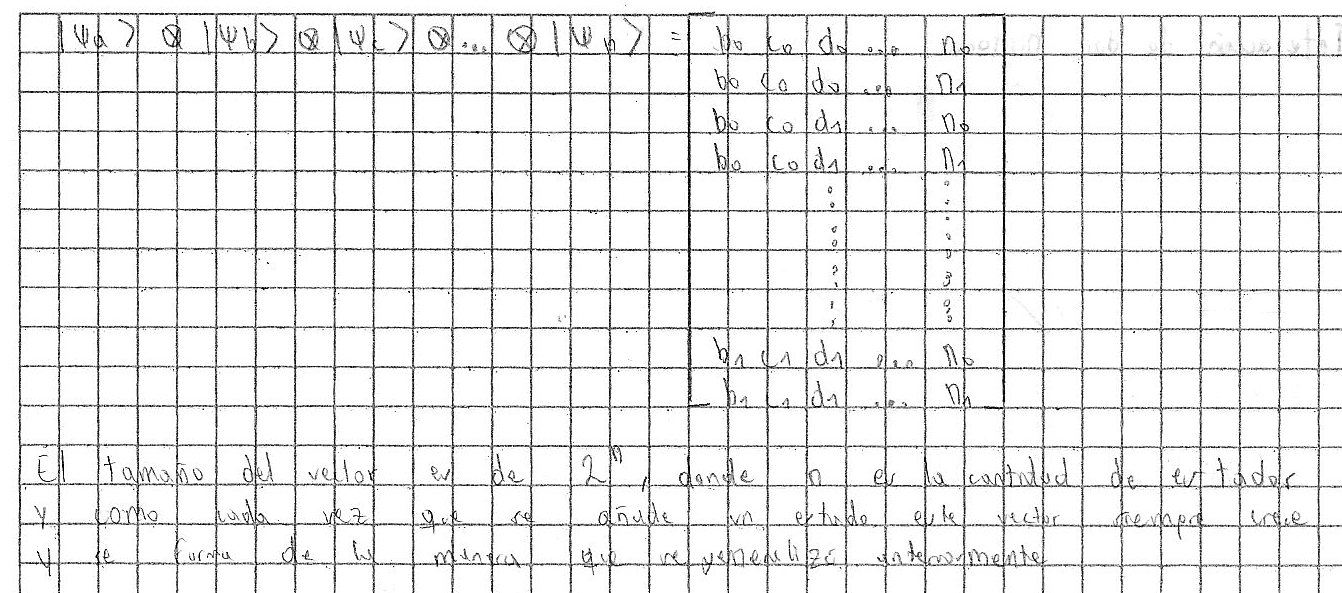 |Ψa> ⊗ |Ψb> ⊗ |Ψc> ⊗ ... ⊗ |Ψn> = b0 c0 d0 ... n0
b0 c0 d0 ... n1
b0 c0 d1 ... n0
b0 c0 d1 ... n1
b1 c1 d1 ... n0
b1 c1 d1 ... n1
El tamaño del vector es de 2^n, donde n es la cantidad de estados
y como cada vez que se añade un estado este vector siempre crece
y se forma de la manera que se generalizó anteriormente